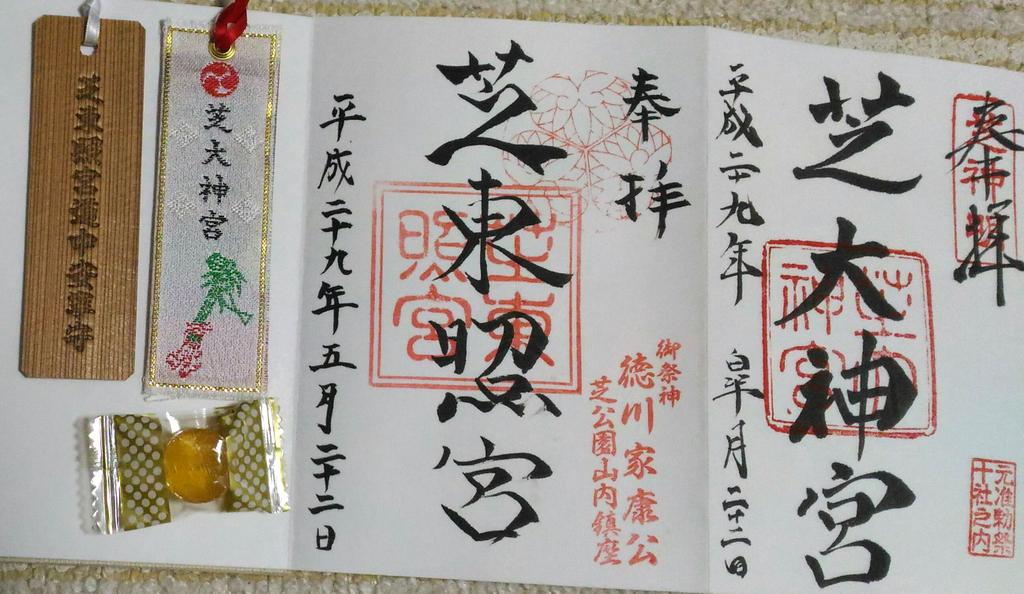 奉拝
元准勅祭
十社之内
芝大神宮
芝大
神宮
平成二十九年 皐月二十二日
奉拝
御祭神
徳川家康公
芝公園山内鎮座
芝東照宮
芝東
照宮
平成二十九年五月二十二日
芝大神宮
芝東照宮道中安全守